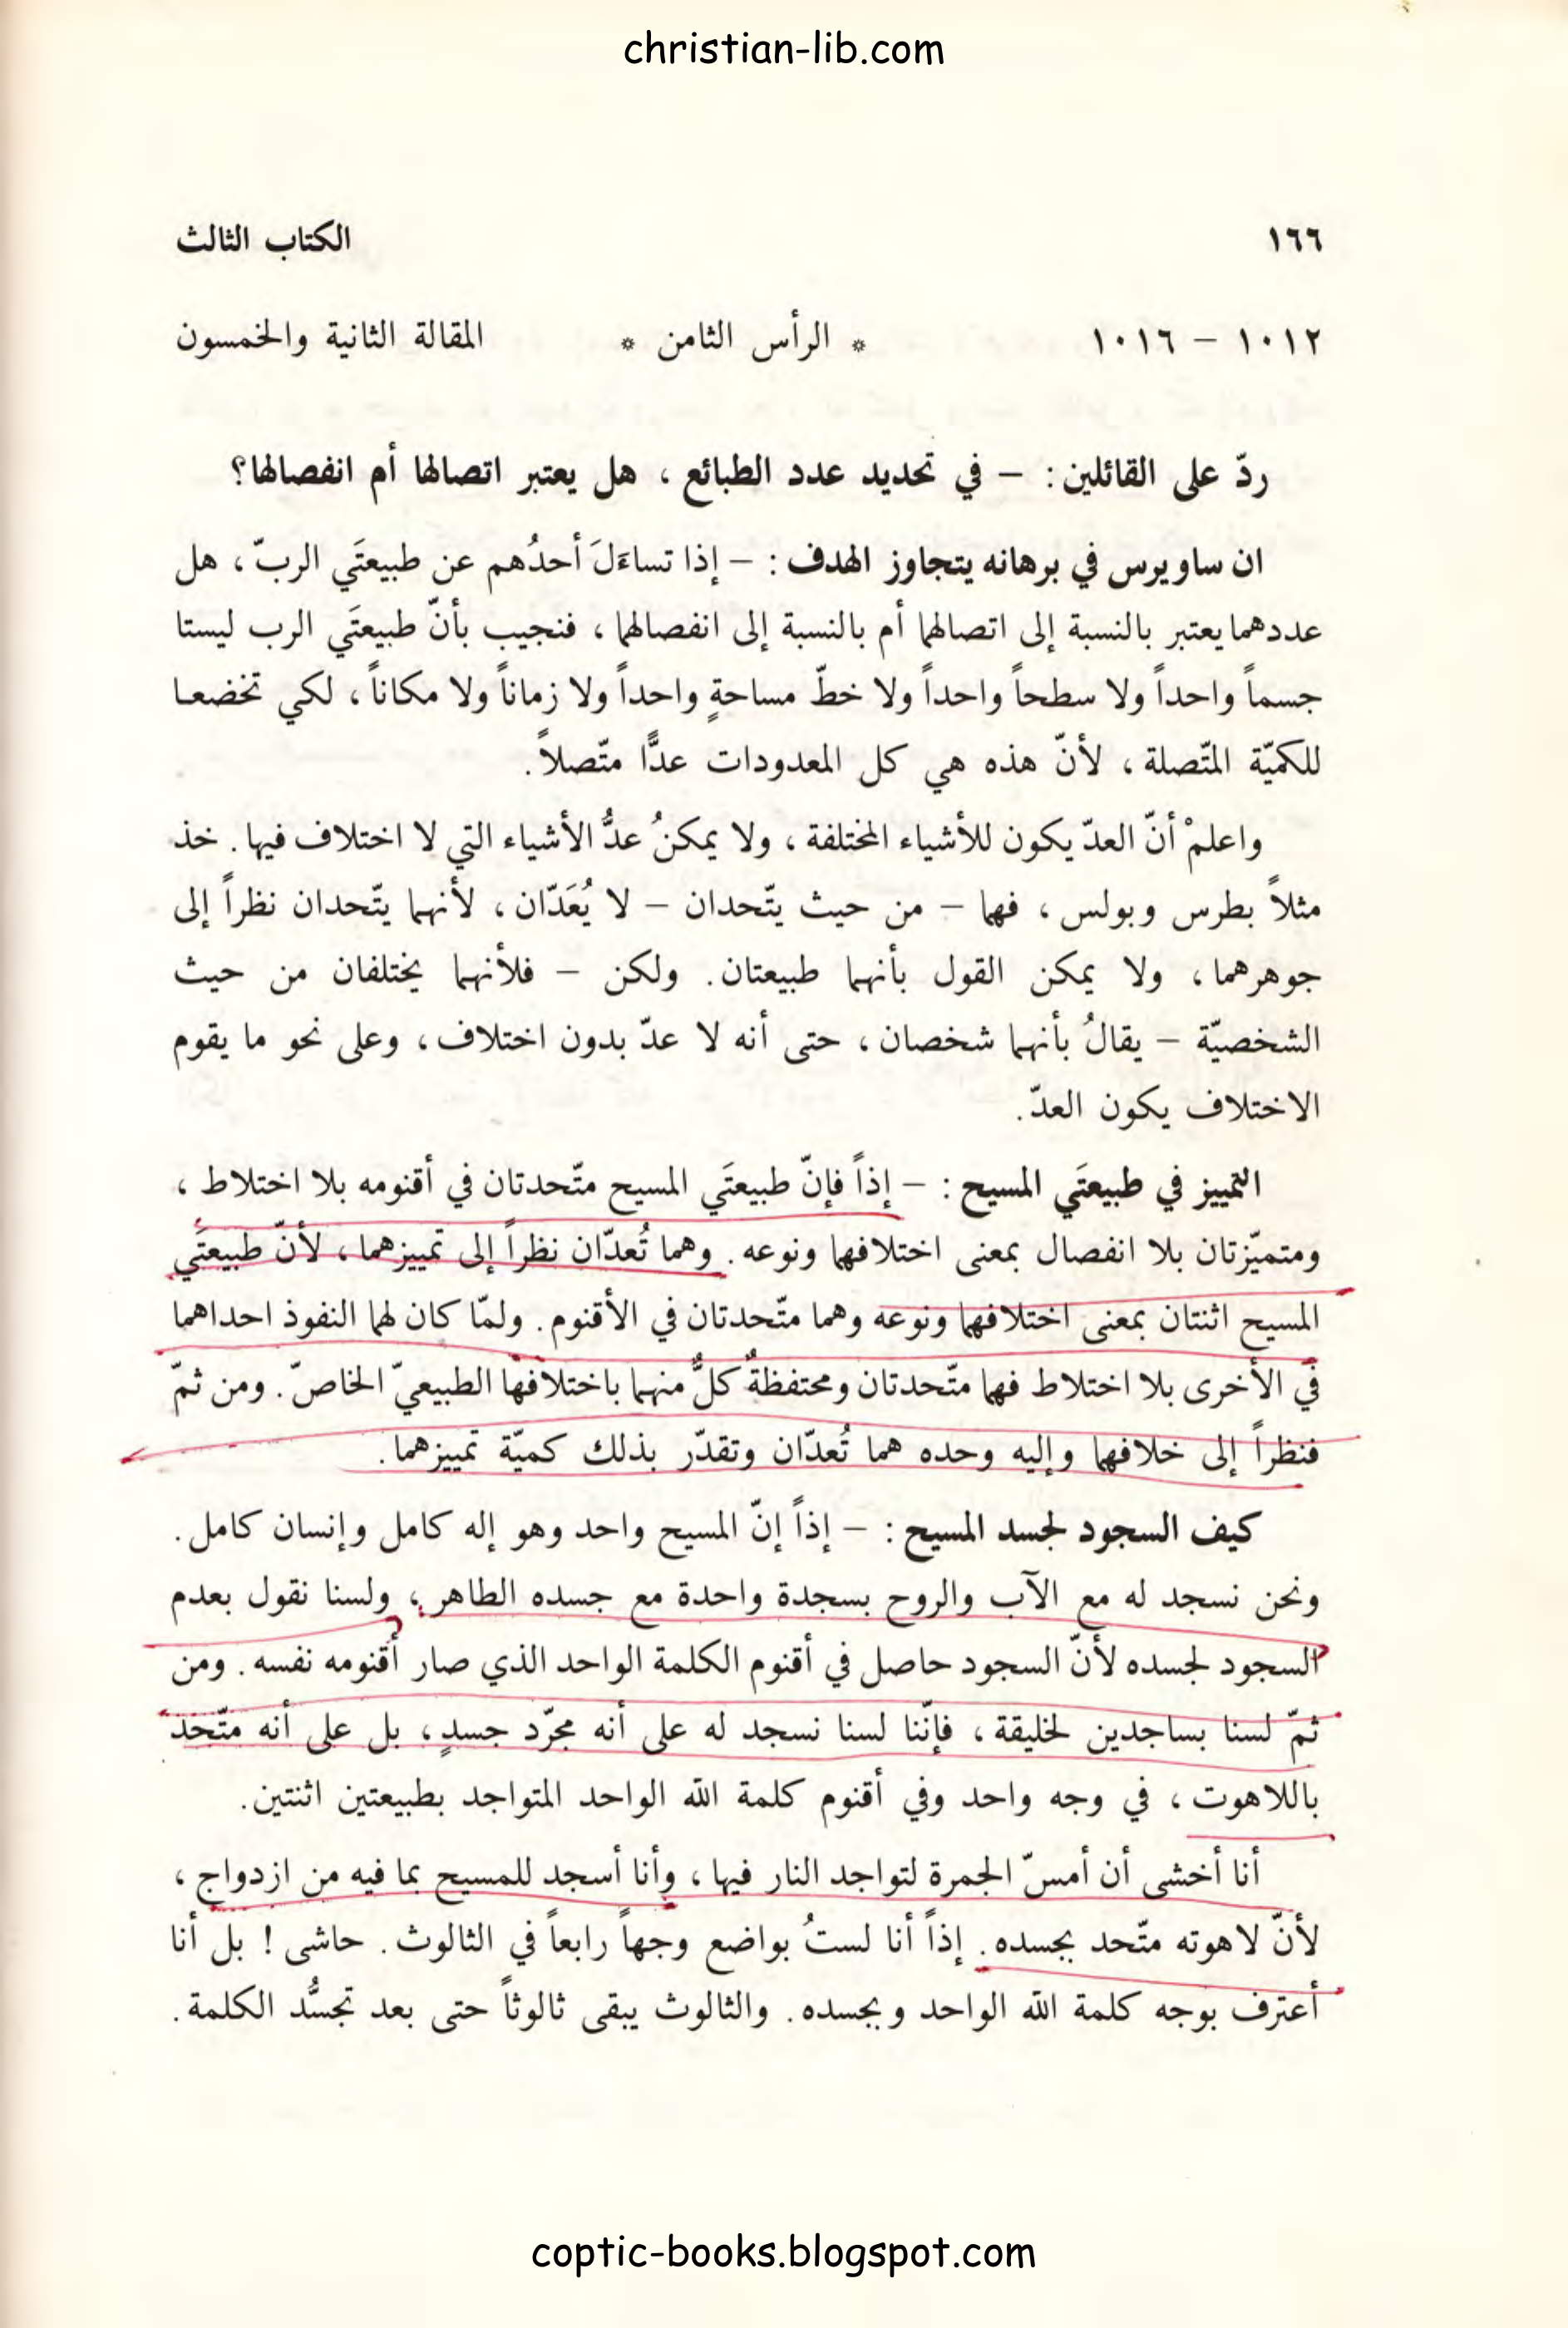 christian-lib.com
١٦٦ الكتاب الثالث
١٠١٢ – ١٠١٦ * الرأس الثامن * المقالة الثانية والخمسون
ردّ على القائلين : – في تحديد عدد الطبائع ، هل يعتبر اتصالها أم انفصالها؟
ان ساويرس في برهانه يتجاوز الهدف : – إذا تساءَلَ أحدُهم عن طبيعتَي الربّ ، هل
عددهما يعتبر بالنسبة إلى اتصالهما أم بالنسبة إلى انفصالهما ، فنجيب بأنّ طبيعتَي الرب ليستا
جسماً واحداً ولا سطحاً واحداً ولا خطّ مساحةٍ واحداً ولا زماناً ولا مكاناً ، لكي تخضعا
للكميّة المتّصلة ، لأنّ هذه هي كل المعدودات عدًّا متّصلاً.
واعلمْ أنّ العدّ يكون للأشياء المختلفة ، ولا يمكنُ عدُّ الأشياء التي لا اختلاف فيها. خذ
مثلاً بطرس وبولس ، فهما – من حيث يتّحدان – لا يُعَدّان ، لأنهما يتّحدان نظراً إلى
جوهرهما ، ولا يمكن القول بأنهما طبيعتان. ولكن – فلأنهما يختلفان من حيث
الشخصيّة – يقالُ بأنهما شخصان ، حتى أنه لا عدّ بدون اختلاف ، وعلى نحو ما يقوم
الاختلاف يكون العدّ.
التمييز في طبيعتَي المسيح : – إذاً فإنّ طبيعتَي المسيح متّحدتان في أقنومه بلا اختلاط ،
ومتميّزتان بلا انفصال بمعنى اختلافهما ونوعه. وهما تُعدّان نظراً إلى تمييزهما ، لأنّ طبيعتَي
المسيح اثنتان بمعنى اختلافهما ونوعه وهما متّحدتان في الأقنوم. ولمّا كان لهما النفوذ احداهما
في الأخرى بلا اختلاط فهما متّحدتان ومحتفظةٌ كلٌّ منهما باختلافها الطبيعيّ الخاصّ. ومن ثمّ
فنظراً إلى خلافهما وإليه وحده هما تُعدّان وتقدّر بذلك كميّة تمييزهما.
كيف السجود لجسد المسيح : – إذاً إنّ المسيح واحد وهو إله كامل وإنسان كامل.
ونحن نسجد له مع الآب والروح بسجدة واحدة مع جسده الطاهر ، ولسنا نقول بعدم
السجود لجسده لأنّ السجود حاصل في أقنوم الكلمة الواحد الذي صار أقنومه نفسه. ومن
ثمّ لسنا بساجدين لخليقة ، فإنّنا لسنا نسجد له على أنه مجرّد جسدٍ ، بل على أنه متّحد
باللاهوت ، في وجه واحد وفي أقنوم كلمة الله الواحد المتواجد بطبيعتين اثنتين.
أنا أخشى أن أمسّ الجمرة لتواجد النار فيها ، وأنا أسجد للمسيح بما فيه من ازدواج ،
لأنّ لاهوته متّحد بجسده. إذاً أنا لستُ بواضع وجهاً رابعاً في الثالوث. حاشى ! بل أنا
أعترف بوجه كلمة الله الواحد وبجسده. والثالوث يبقى ثالوثاً حتى بعد تجسُّد الكلمة.
coptic-books.blogspot.com